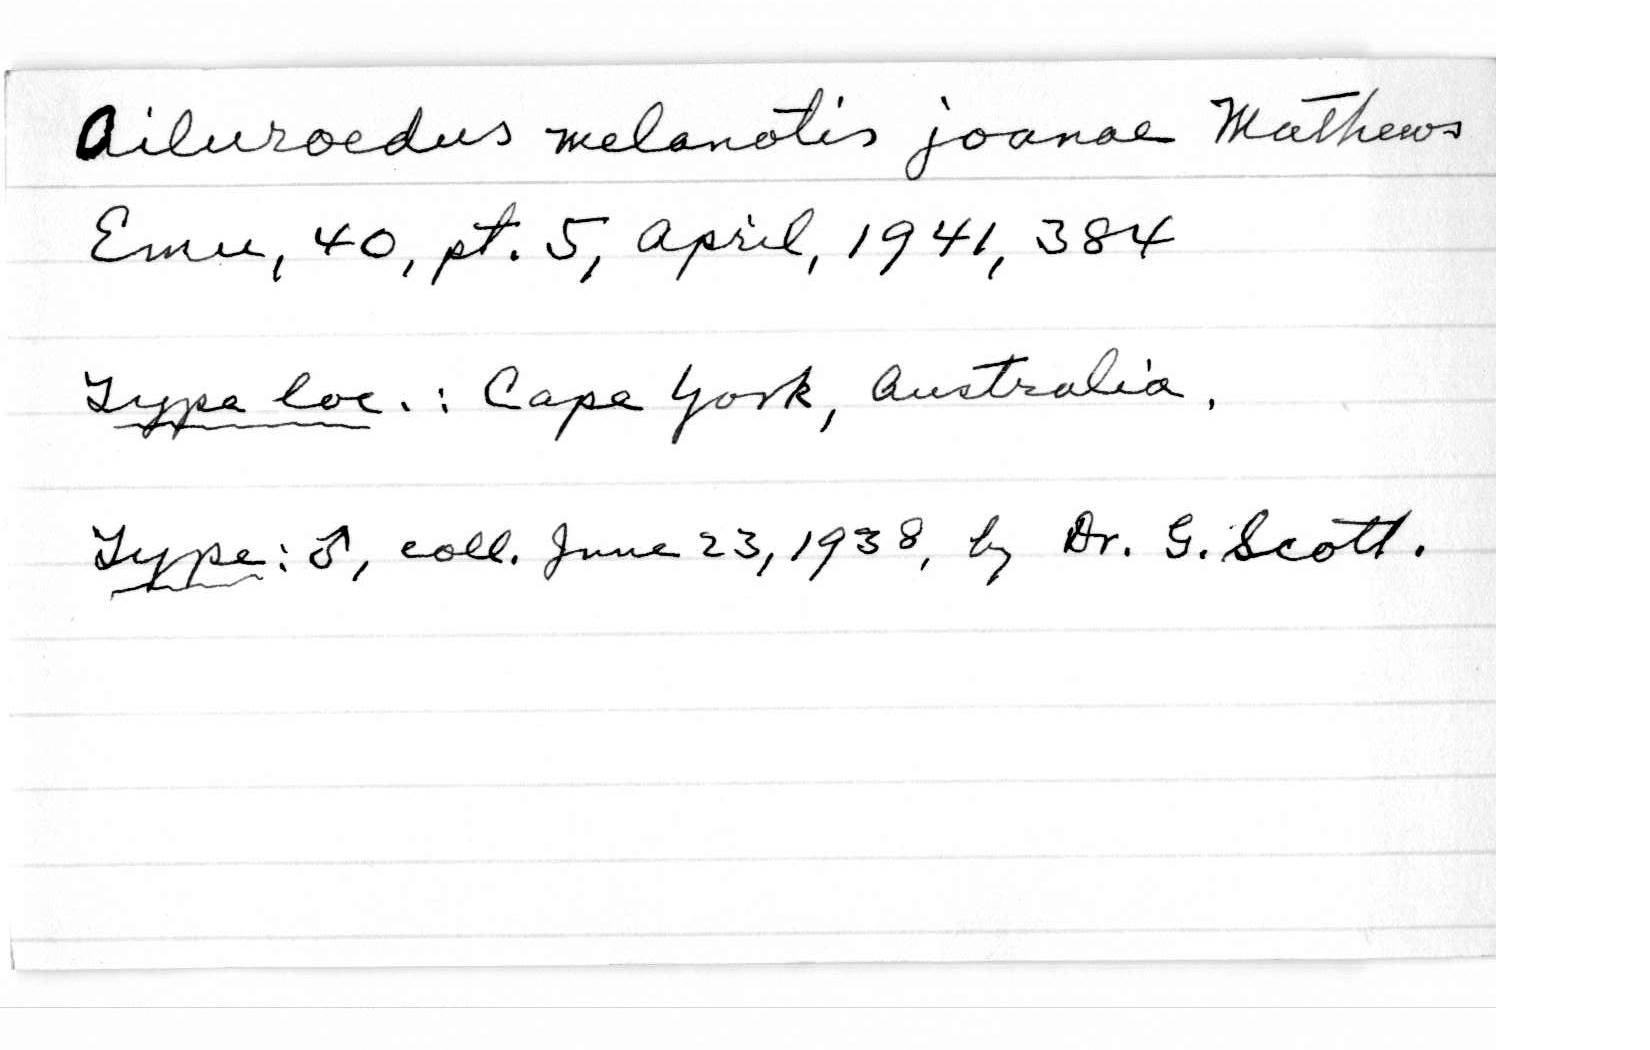 Ailuroedus melanotis joanae Mathews
Emu, 40, pt. 5, April, 1941, 384
Type loc. : Cape York, Australia.
Type: ♂, coll. June 23, 1938, by Dr. G. Scott.